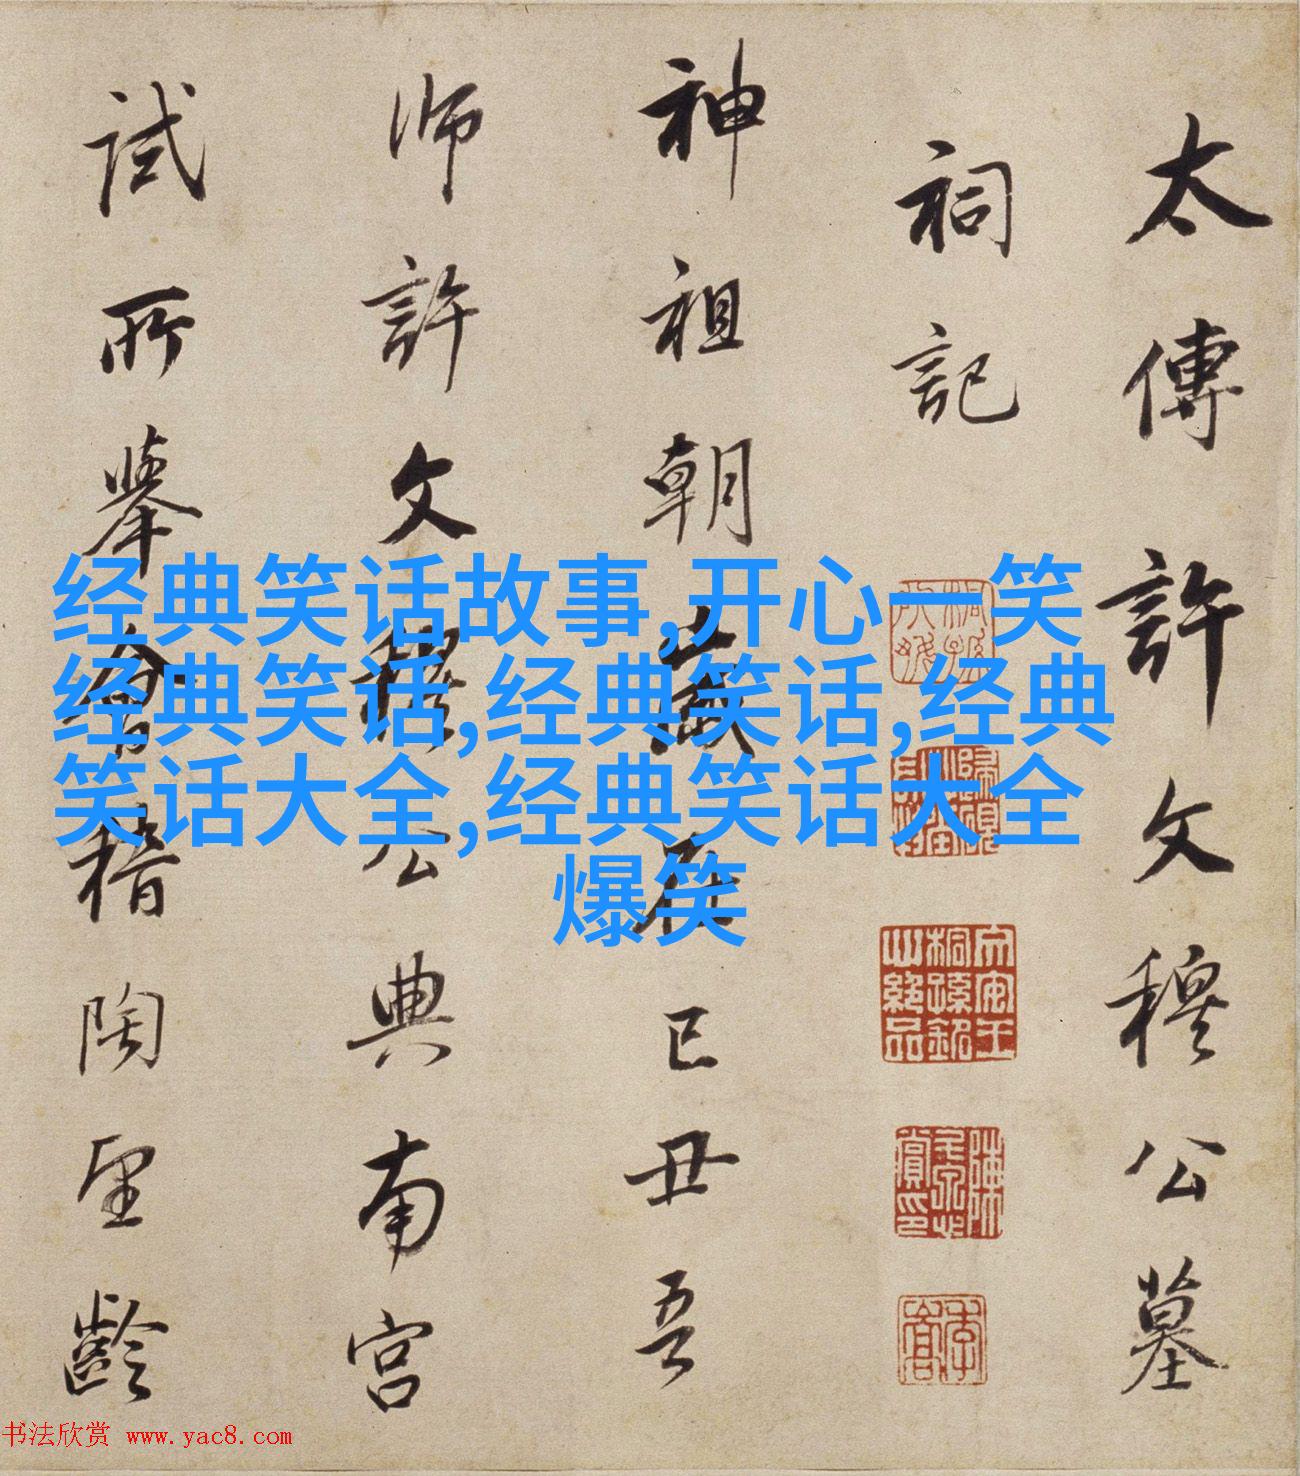 太傳許文穆公墓
祠記
神祖朝歲在己丑吾
师許文穆公典南宫
試所舉會稽陶望齡
经典笑话故事,开心一笑
经典笑话,经典笑话,经典
笑话大全,经典笑话大全
爆笑
书法欣赏 www.yac8.com